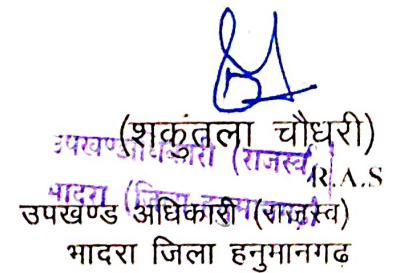 (शकुंतला चौधरी)
उपखण्ड अधिकारी (राजस्व)
R.A.S
भादरा (जिला हनुमानगढ़)
उपखण्ड अधिकारी (राजस्व)
भादरा जिला हनुमानगढ़